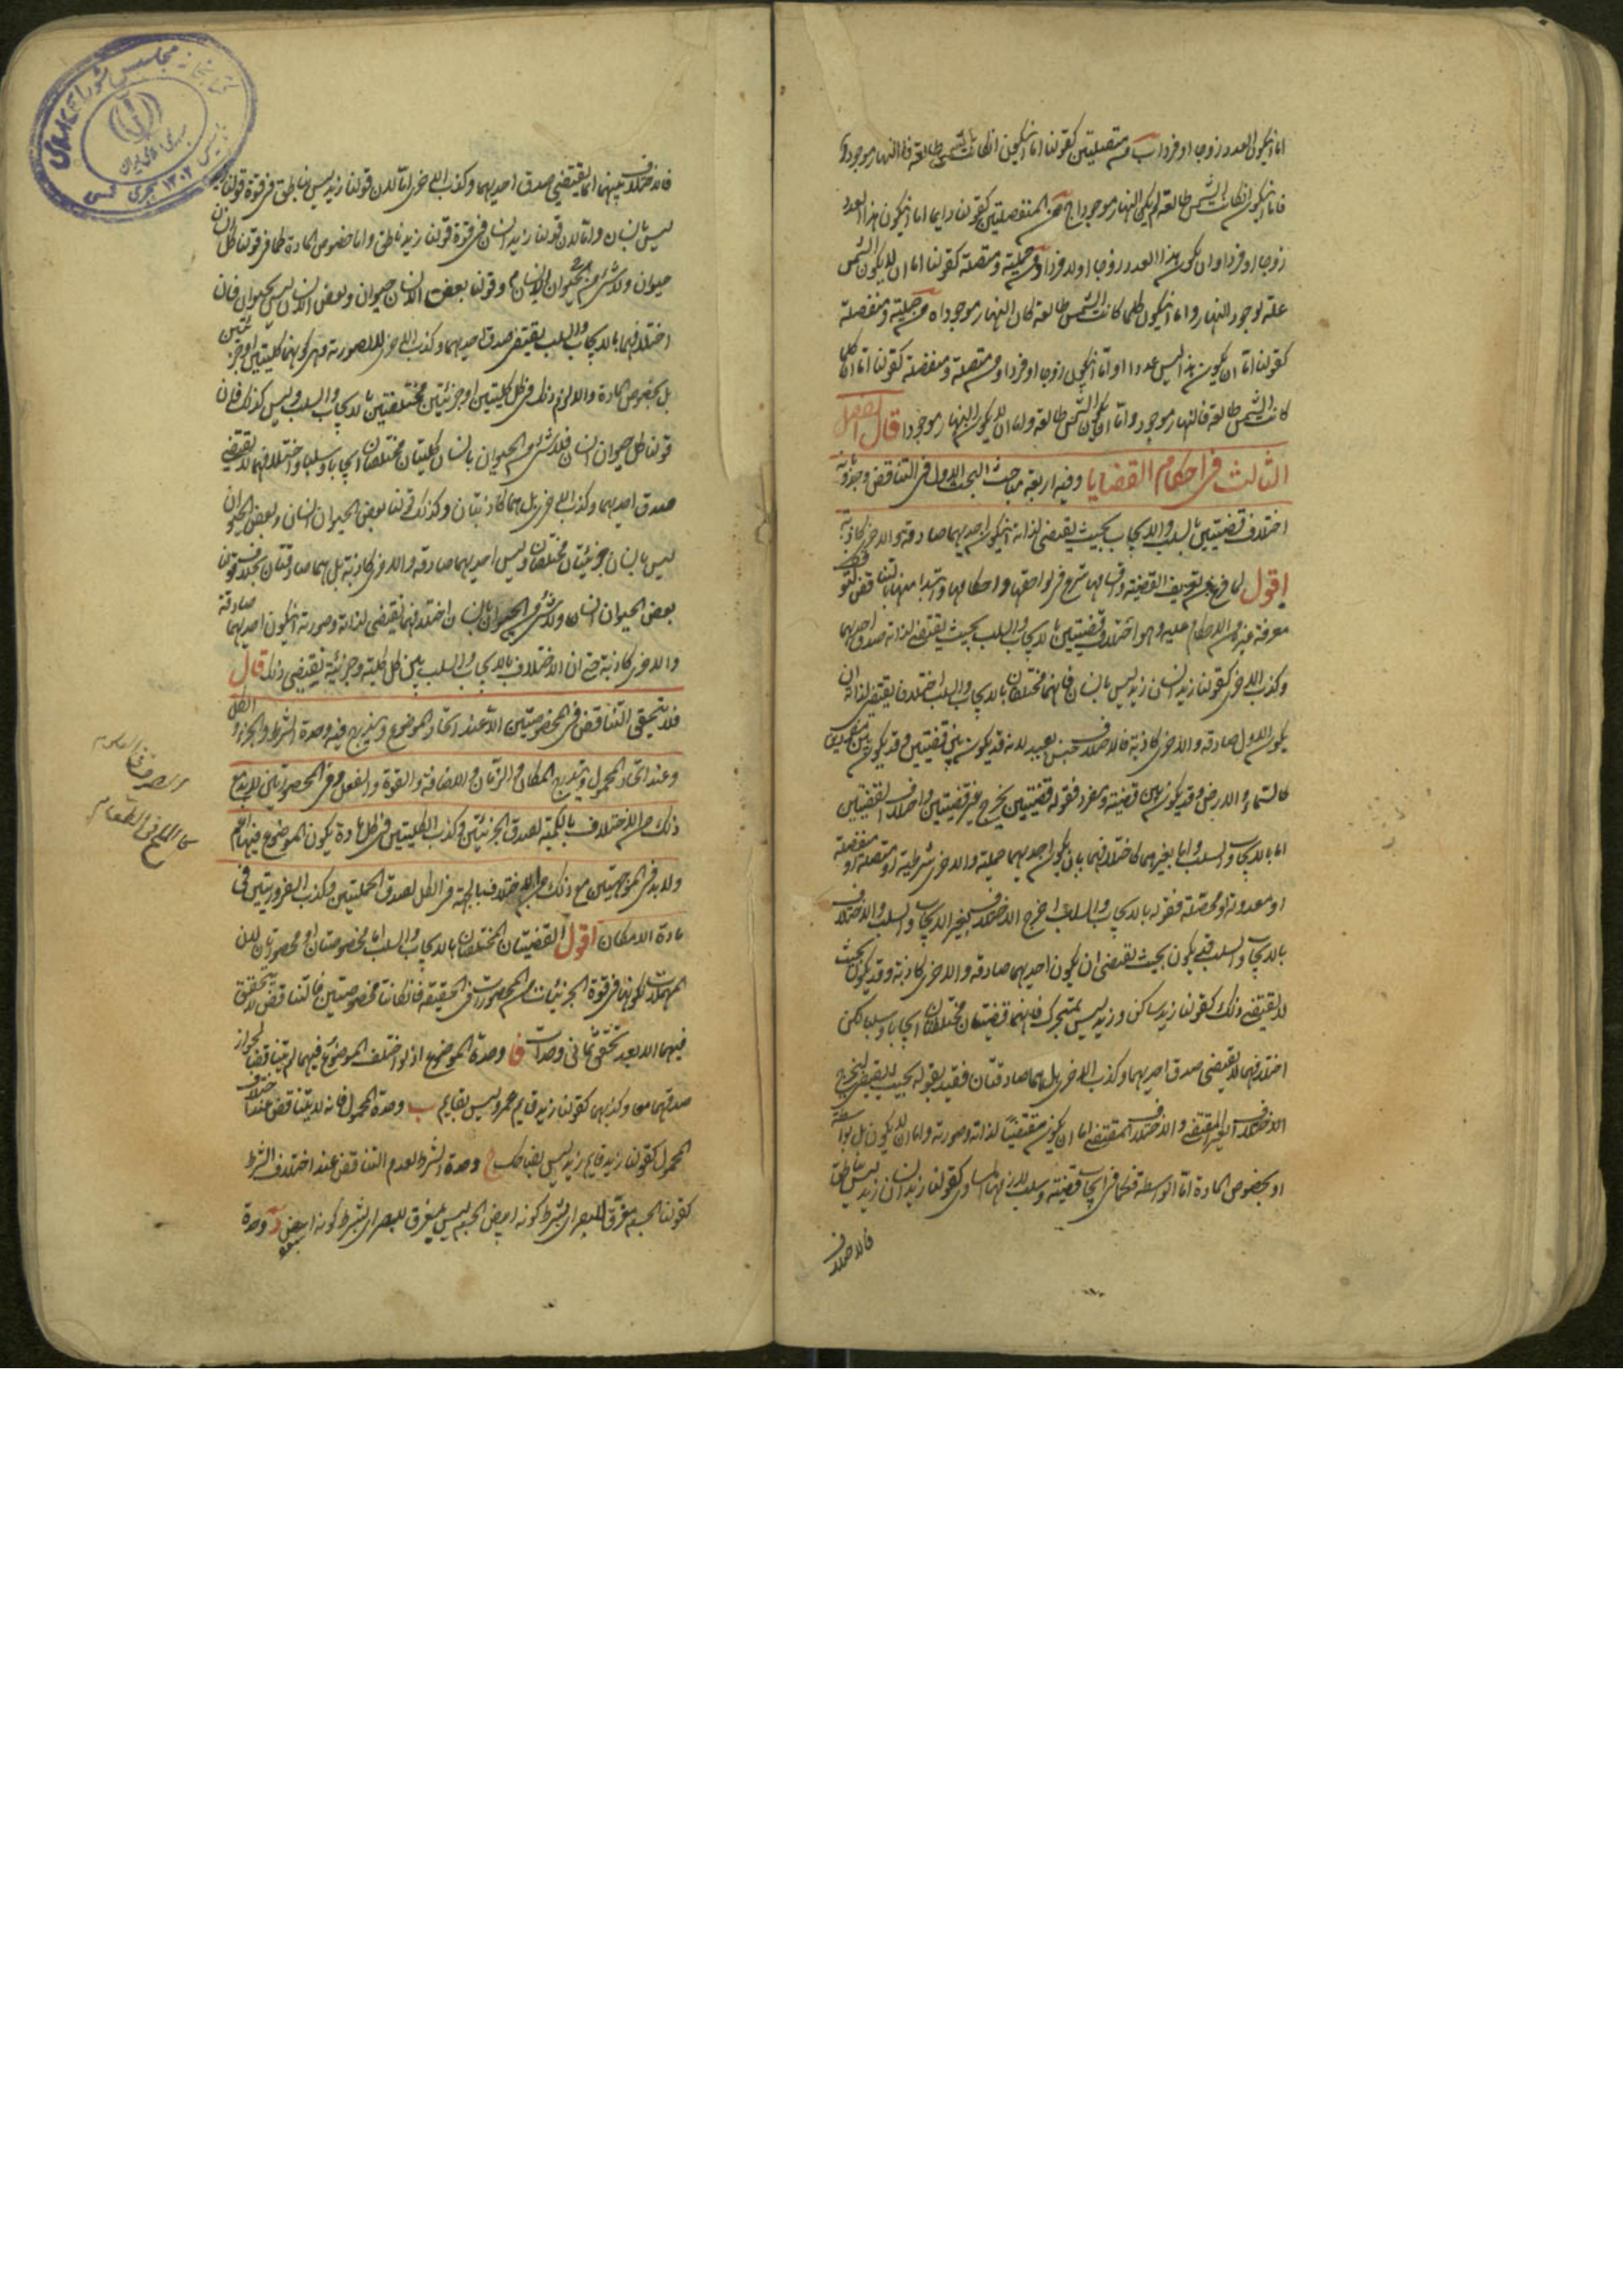 اما ان يكون العدد زوجا او فردا ب من متصلتين كقولنا اما ان يكون ان كانت الشمس طالعة فالنهار موجود و
فاما ان يكون ان كانت الشمس طالعة لم يكن النهار موجودا ج من المنفصلتين كقولنا دايما اما ان يكون هذا العدد
زوجا او فردا و ان يكون هذا العدد زوجا او لا فردا د من حملية و متصلة كقولنا اما ان لا يكون الشمس
علة لوجود النهار و اما ان يكون كلما كانت الشمس طالعة كان النهار موجودا ه من حملية و منفصلة
كقولنا اما ان يكون هذا ليس عددا او اما ان يكون زوجا او فردا و من متصلة و منفصلة كقولنا اما ان كلما
كانت الشمس طالعة فالنهار موجود و اما ان يكون الشمس طالعة و اما ان لا يكون النهار موجودا قال الفصل
الثالث في احكام القضايا و فيه اربعة مباحث البحث الاول في التناقض وحدوه بانه
اختلاف قضيتين بالسلب و الايجاب بحيث يقتضي لذاته ان يكون احديهما صادقة و الاخرى كاذبة
اقول لما فرغ من تعريف القضية و اقسامها شرع في لواحقها و احكامها و ابتدا منها بالتناقض لتوقف
معرفة غيره من الاحكام عليه و هو اختلاف قضيتين بالايجاب و السلب بحيث يقتضي لذاته صدق احديهما
و كذب الاخرى كقولنا زيد انسان زيد ليس بانسان فانهما مختلفتان بالايجاب و السلب اختلافا يقتضي لذاته ان
يكون الاولى صادقة و الاخرى كاذبة فالاختلاف جنس بعيد لانه قد يكون بين قضيتين و قد يكون بين مفردين
كالسماء و الارض و قد يكون بين قضية و مفرد فقوله قضيتين يخرج غير قضيتين و اختلاف القضيتين
اما بالايجاب و السلب و اما بغيرهما كاختلافهما بان يكون احديهما حملية و الاخرى شرطية او متصلة او منفصلة
او معدولة او محصلة فقوله بالايجاب و السلب اخرج الاختلاف بغير الايجاب و السلب و الاختلاف
بالايجاب و السلب قد يكون بحيث يقتضي ان يكون احديهما صادقة و الاخرى كاذبة و قد يكون بحيث
لا يقتضي ذلك كقولنا زيد ساكن و زيد ليس بمتحرك فانهما قضيتان مختلفتان ايجابا و سلبا لكن
اختلافهما لا يقتضي صدق احديهما و كذب الاخرى بل هما صادقتان فقيد بقوله بحيث يقتضي ليخرج
الاختلاف الغير المقتضي و الاختلاف المقتضي اما ان يكون مقتضيا لذاته و صورته و اما ان لا يكون بل بواسطة
او بخصوص المادة اما الواسطة فكما في ايجاب قضية و سلب لازمها المساوي كقولنا زيد انسان زيد ليس بناطق
فالاختلاف
فالاختلاف بينهما انما يقتضي صدق احديهما و كذب الاخرى اما لان قولنا زيد ليس بناطق في قوة قولنا زيد
ليس بانسان و اما لان قولنا زيد انسان في قوة قولنا زيد ناطق و اما خصوص المادة كما في قولنا كل انسان
حيوان و لا شيء من الحيوان بانسان و قولنا بعض الانسان حيوان و بعض الانسان ليس بحيوان فان
اختلافهما بالايجاب و السلب يقتضي صدق احديهما و كذب الاخرى لا لصورته و هي كونهما كليتين او جزئيتين
بل بخصوص المادة و الا لزم ذلك في كل كليتين او جزئيتين مختلفتين بالايجاب و السلب و ليس كذلك فان
قولنا كل حيوان انسان و لا شيء من الحيوان بانسان كليتان مختلفتان ايجابا و سلبا و اختلافهما لا يقتضي
صدق احديهما و كذب الاخرى بل هما كاذبتان و كذلك قولنا بعض الحيوان انسان و بعض الحيوان
ليس بانسان جزئيتان مختلفتان و ليس احديهما صادقة و الاخرى كاذبة بل هما صادقتان بخلاف قولنا
بعض الحيوان انسان و لا شيء من الحيوان بانسان اختلافهما يقتضي لذاته و صورته ان يكون احديهما صادقة
و الاخرى كاذبة حتى ان الاختلاف بالايجاب و السلب بين كل كلية و جزئية يقتضي ذلك قال
فلا يتحقق التناقض في المخصوصتين الا عند اتحاد الموضوع و يندرج فيه وحدة الشرط و الجزء و الكل
و عند اتحاد المحمول و يندرج المكان و الزمان و الاضافة و القوة و الفعل و في المحصورتين لا بد مع
ذلك من الاختلاف بالكمية لصدق الجزئيتين و كذب الكليتين في كل مادة يكون الموضوع فيها اعم
و لا بد في الموجهتين مع ذلك من الاختلاف بالجهة في الكل لصدق الممكنتين و كذب الضروريتين في
مادة الامكان اقول القضيتان المختلفتان بالايجاب و السلب اما مخصوصتان او محصورتان لان
المهملات لكونها في قوة الجزئيات من المحصورات في الحقيقة فان كانتا مخصوصتين فالتناقض لا يتحقق
فيهما الا بعد تحقق ثماني وحدات فا وحدة الموضوع اذ لو اختلف الموضوع فيهما لم يتناقضا لجواز
صدقهما معا و كذبهما كقولنا زيد قايم عمرو ليس بقايم ب وحدة المحمول فانه لا تناقض عند اختلاف
المحمول كقولنا زيد قايم زيد ليس بضاحك ج وحدة الشرط لعدم التناقض عند اختلاف الشرط
كقولنا الجسم مفرق للبصر اى بشرط كونه ابيض الجسم ليس بمفرق للبصر اى بشرط كونه اسود د وحدة
كالملح في الطعام
كتابخانه مجلس شورای اسلامی